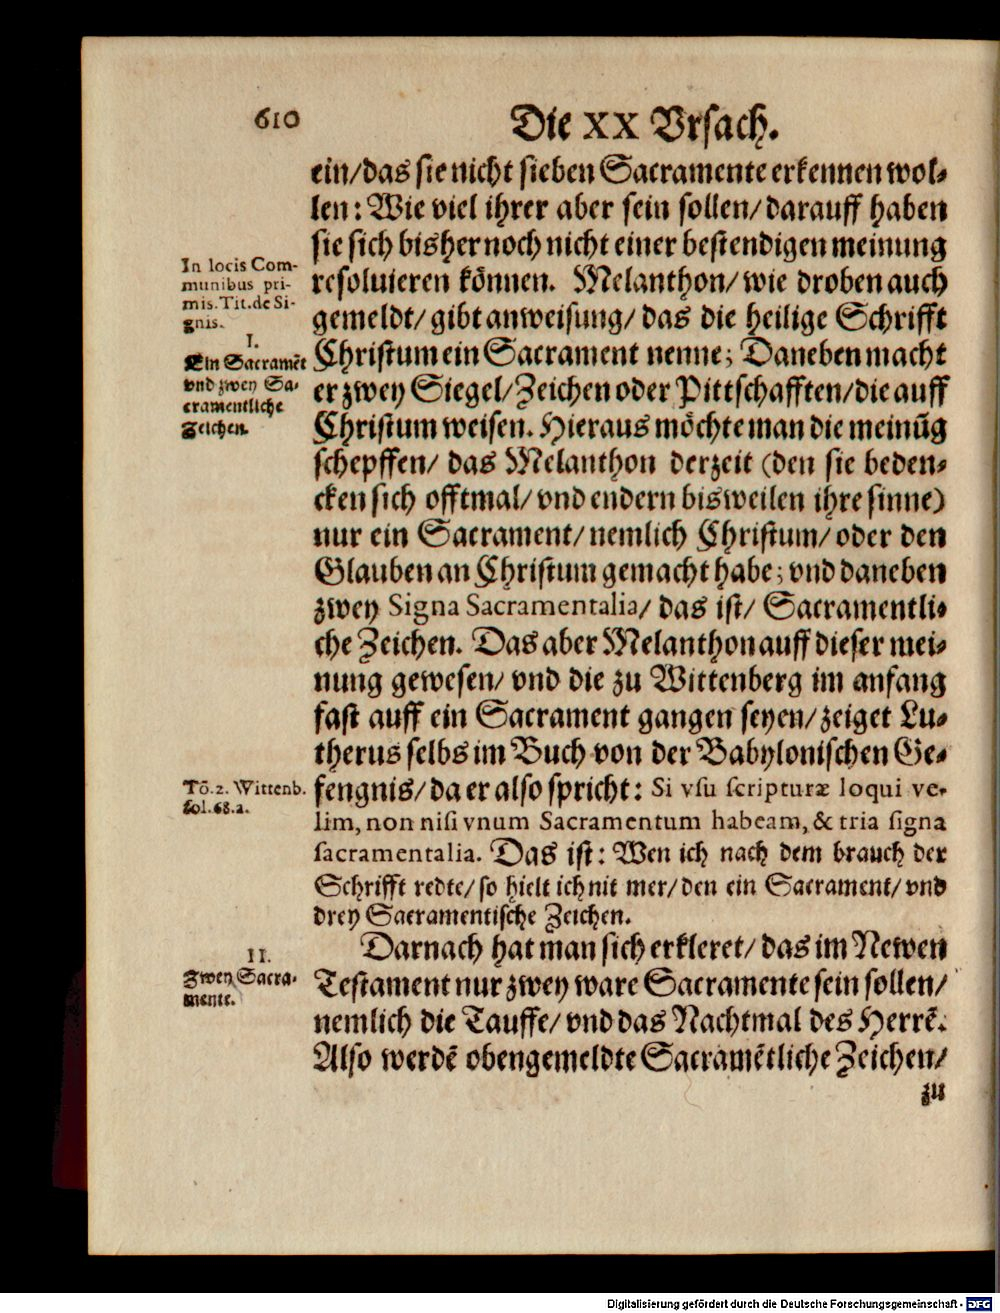 610
Die XX Vrsach.
ein/das sie nicht sieben Sacramente erkennen wol-
len: Wie viel ihrer aber sein sollen/darauff haben
sie sich bisher noch nicht einer bestendigen meinung
resoluieren können. Melanthon/wie droben auch
gemeldt/gibt anweisung/das die heilige Schrifft
Christum ein Sacrament nenne; Daneben macht
er zwey Siegel/Zeichen oder Pittschafften/die auff
Christum weisen. Hieraus möchte man die meinũg
schepffen/ das Melanthon derzeit (den sie beden-
cken sich offtmal/vnd endern bisweilen ihre sinne)
nur ein Sacrament/nemlich Christum/oder den
Glauben an Christum gemacht habe; vnd daneben
zwey Signa Sacramentalia/ das ist/ Sacramentli-
che Zeichen. Das aber Melanthon auff dieser mei-
nung gewesen/ vnd die zu Wittenberg im anfang
fast auff ein Sacrament gangen seyen/zeiget Lu-
therus selbs im Buch von der Babylonischen Ge-
fengnis/da er also spricht: Si vsu scripturæ loqui ve-
lim, non nisi vnum Sacramentum habeam, & tria signa
sacramentalia. Das ist: Wen ich nach dem brauch der
Schrifft redte/so hielt ich nit mer/den ein Sacrament/vnd
drey Sacramentische Zeichen.
Darnach hat man sich erkleret/das im Newen
Testament nur zwey ware Sacramente sein sollen/
nemlich die Tauffe/vnd das Nachtmal des Herrẽ.
Also werdẽ obengemeldte Sacramẽtliche Zeichen/
zu
In locis Com-
munibus pri-
mis. Tit. de Si-
gnis.
I.
Ein Sacramẽt
vnd zwey Sa-
cramentliche
Zeichen.
Tõ. 2. Wittenb.
fol. 68. a.
II.
Zwey Sacra-
mente.
Digitalisierung gefördert durch die Deutsche Forschungsgemeinschaft - DFG